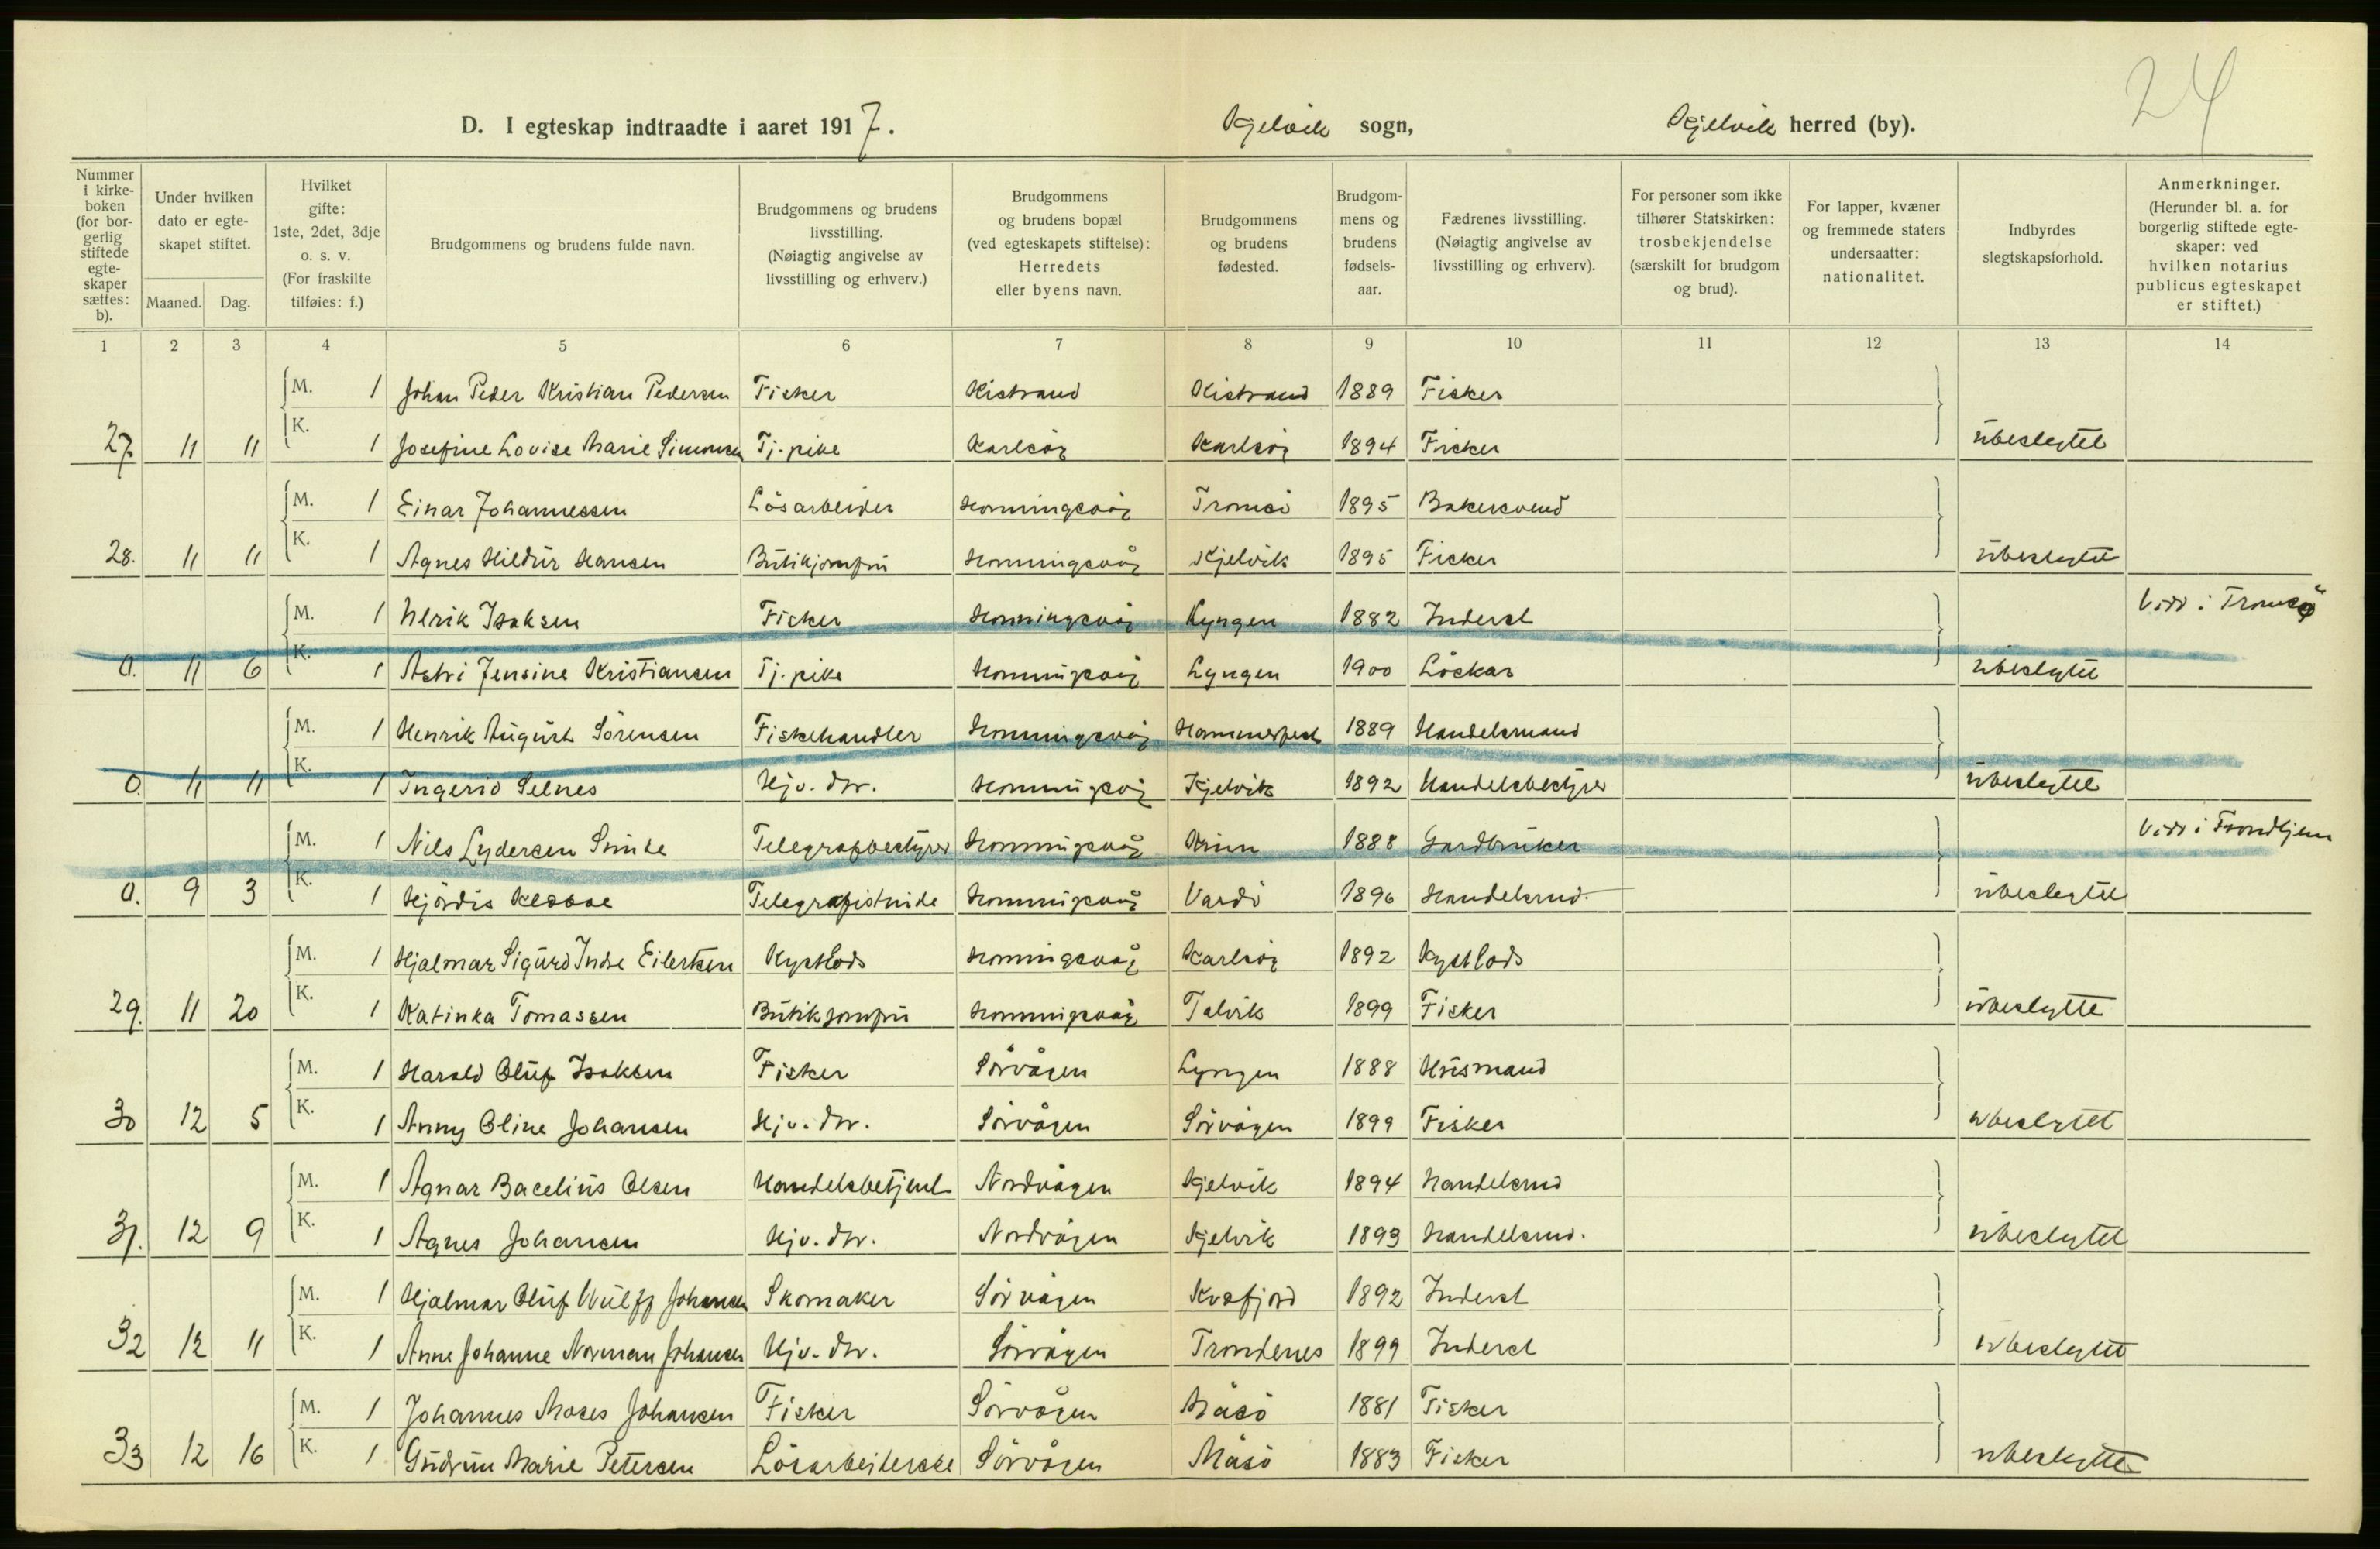 24
D. I egteskap indtraadte i aaret 1917. Kjelvik sogn, Kjelvik herred (by).
Nummer i kirke- boken (for bor- gerlig stiftede egte- skaper sættes: b).
Under hvilken dato er egte- skapet stiftet.
Maaned. Dag.
Hvilket gifte: 1ste, 2det, 3dje o. s. v. (For fraskilte tilføies: f.)
Brudgommens og brudens fulde navn.
Brudgommens og brudens livsstilling. (Nøiagtig angivelse av livsstilling og erhverv.)
Brudgommens og brudens bopæl (ved egteskapets stiftelse): Herredets eller byens navn.
Brudgommens og brudens fødested.
Brudgom- mens og brudens fødsels- aar.
Fædrenes livsstilling. (Nøiagtig angivelse av livsstilling og erhverv).
For personer som ikke tilhører Statskirken: trosbekjendelse (særskilt for brudgom og brud).
For lapper, kvæner og fremmede staters undersaatter: nationalitet.
Indbyrdes slegtskapsforhold.
Anmerkninger. (Herunder bl. a. for borgerlig stiftede egte- skaper: ved hvilken notarius publicus egteskapet er stiftet.)
1 2 3 4 5 6 7 8 9 10 11 12 13 14
M. 1 Johan Peder Kristian Pedersen Fisker Kistrand Kistrand 1889 Fisker
27. 11 11 K. 1 Josefine Lovise Marie Simonsen Tj. pike Karlsöy Karlsöy 1894 Fisker übeslegtet
M. 1 Einar Johannessen Lösarbeider Honningsvåg Tromsö 1895 Bakersvend
28. 11 11 K. 1 Agnes Hildur Hansen Butikjomfru Honningsvåg Kjelvik 1895 Fisker übeslegtet
M. 1 Ulrik Isaksen Fisker Honningsvåg Lyngen 1882 Inderst Viet i Tromsö
0. 11 6 K. 1 Astri Jensine Kristiansen Tj. pike Honningsvåg Lyngen 1900 Löskar übeslegtet
M. 1 Henrik August Sörensen Fiskehandler Honningsvåg Hammerfest 1889 Handelsmand
0. 11 11 K. 1 Ingerid Selnes Hjv. dtr. Honningsvåg Kjelvik 1892 Handelsbestyrer übeslegtet
M. 1 Nils Lydersen Telegrafbestyrer Honningsvåg Kinn 1888 Gardbruker Viet i Trondhjem
0. 9 3 K. 1 Hjördis Klæboe Telegrafistinde Honningsvåg Vardö 1896 Handelsmd. übeslegtet
M. 1 Hjalmar Sigurd Indre Eilertsen Kystlods Honningsvåg Karlsöy 1892 Kystlods
29. 11 20 K. 1 Katinka Tomassen Butikjomfru Honningsvåg Talvik 1899 Fisker übeslegtet
M. 1 Harald Oluf Isaksen Fisker Sörvågen Lyngen 1888 Husmand
30 12 5 K. 1 Anny Oline Johansen Hjv. dtr. Sörvågen Sörvågen 1899 Fisker übeslegtet
M. 1 Agnar Bacelius Olsen Handelsbetjent Nordvågen Kjelvik 1894 Handelsmd
31. 12 9 K. 1 Agnes Johansen Hjv. dtr. Nordvågen Kjelvik 1893 Handelsmd. übeslegtet
M. 1 Hjalmar Oluf Wulff Johansen Skomaker Sörvågen Kvæfjord 1892 Inderst
32 12 11 K. 1 Anne Johanne Norman Johansen Hjv. dtr. Sörvågen Trondenes 1899 Inderst übeslegtet
M. 1 Johannes Moses Johansen Fisker Sörvågen Måsö 1881 Fisker
33 12 16 K. 1 Gudrun Marie Petersen Lösarbeiderske Sörvågen Måsö 1883 Fisker übeslegtet